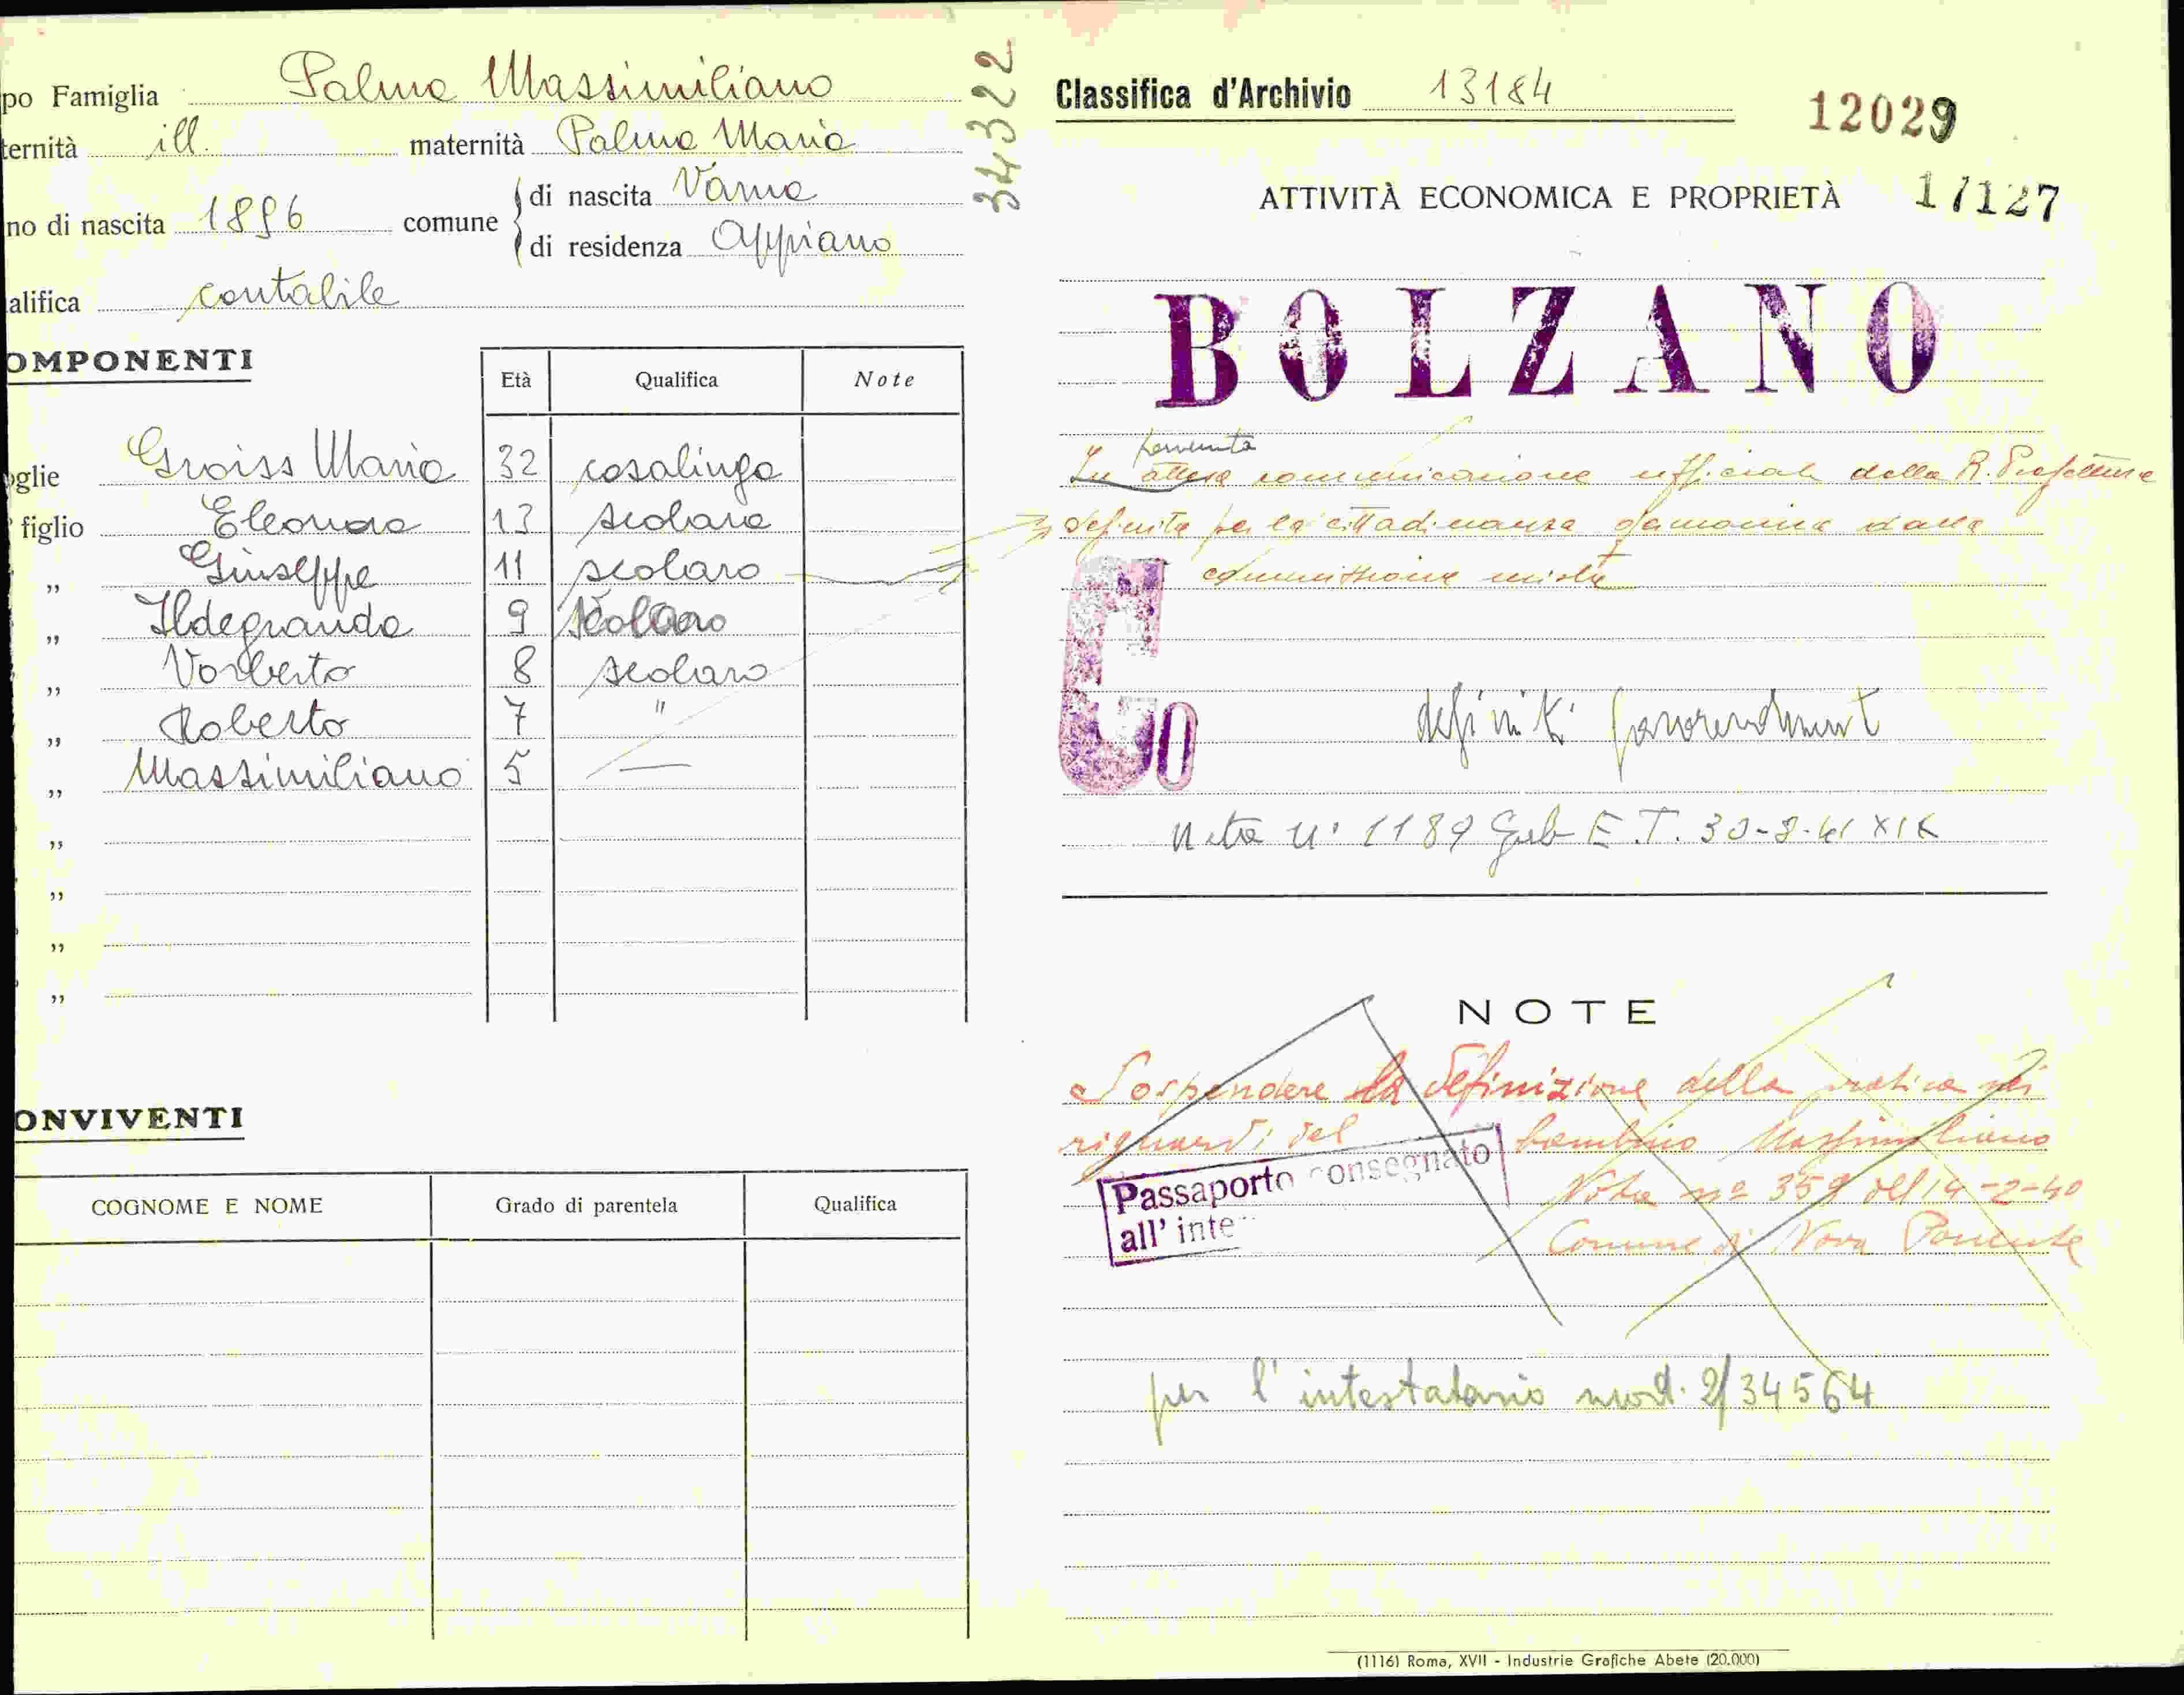 po Famiglia Palma Massimiliano
ternità ill. maternità Palma Maria
no di nascita 1896 comune
di nascita Varna
di residenza Appiano
alifica contabile
34322
OMPONENTI
Età Qualifica Note
oglie Groiss Maria 32 casalinga
figlio Eleonora 13 scolara
" Giuseppe 11 scolaro
" Ildegranda 9 scolaro
" Norberto 8 scolaro
" Roberto 7 "
" Massimiliano 5 —
"
"
"
"
ONVIVENTI
COGNOME E NOME Grado di parentela Qualifica
Classifica d'Archivio 13184
12029
ATTIVITÀ ECONOMICA E PROPRIETÀ 17127
BOLZANO
pervenuta
In attesa comunicazione ufficiale della R. Prefettura
definita per la cittadinanza germanica dalla
commissione mista
G
0
definiti favorevolment
Nota n° 1189 Gab E.T. 30-8-41 XIX
NOTE
Sospendere la definizione della pratica nei
riguardi del bambino Massimiliano
Passaporto consegnato
all' inte
Nota nº 359 del 14-2-40
Comune di Nova Ponente
per l'intestatario mod. 2/34564
(1116) Roma, XVII - Industrie Grafiche Abete (20.000)